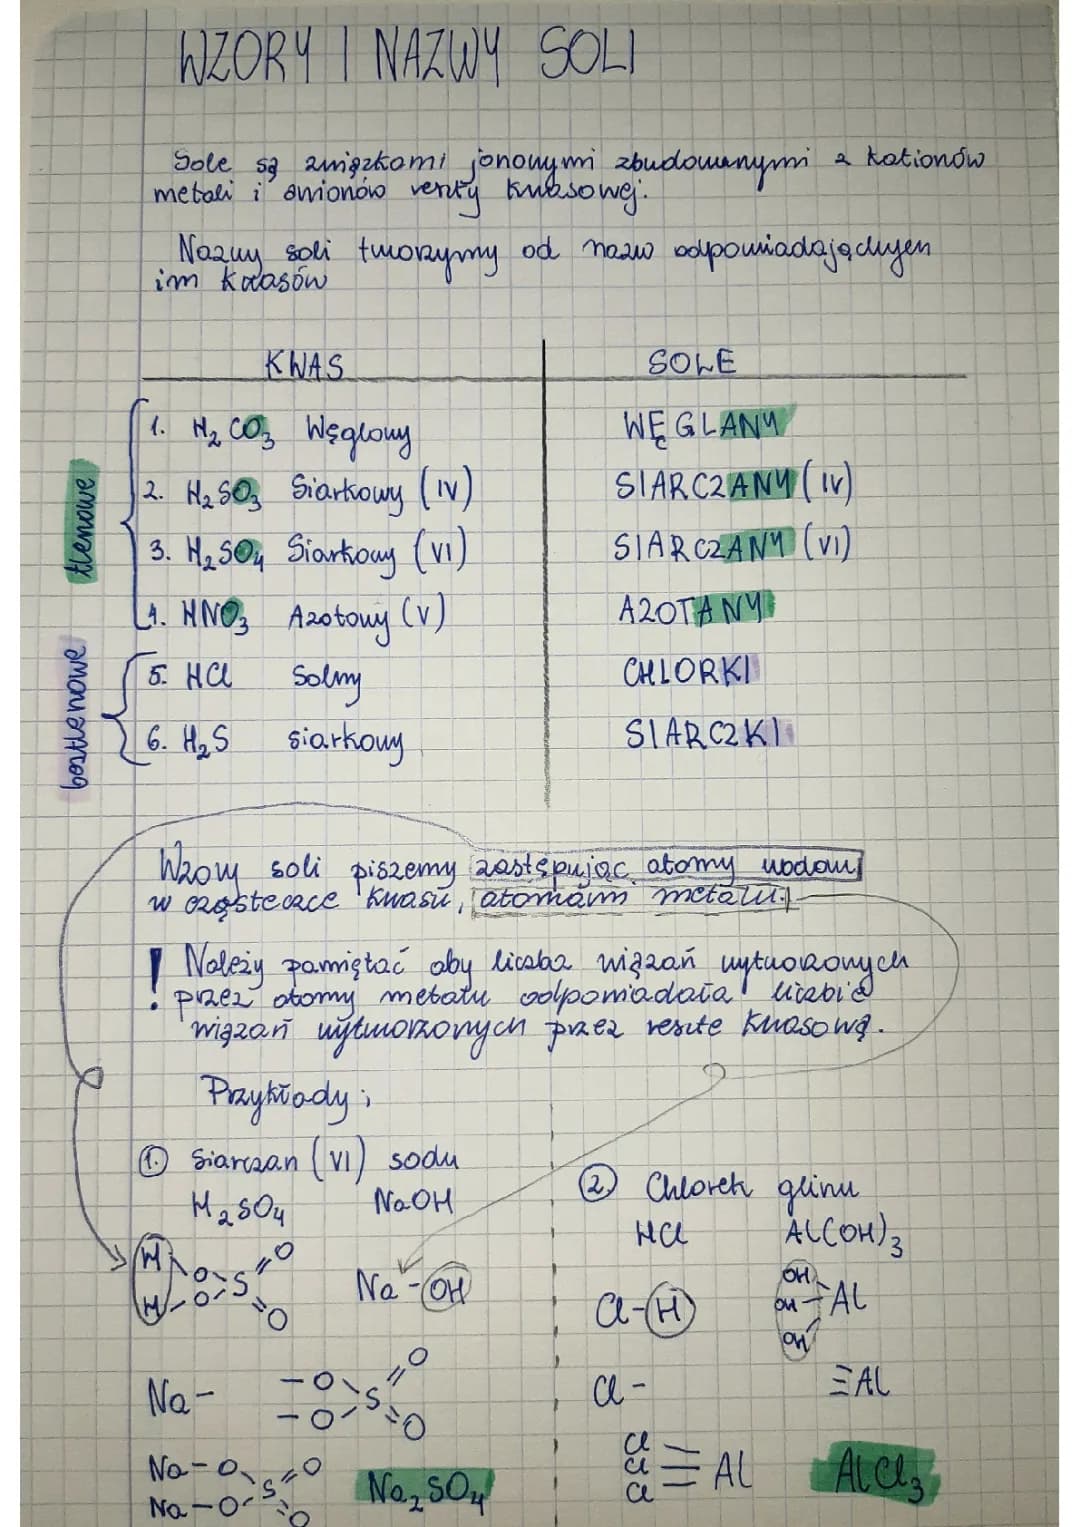 WZORY I NAZWY SOLI
Sole są związkami jonowymi zbudowanymi z kationów
metali i anionów reszty kwasowej.
Nazwy soli tworzymy od nazw odpowiadających
im kwasów
KWAS SOLE
tlenowe
1. H₂CO₃ Węglowy WĘGLANY
2. H₂SO₃ Siarkowy (IV) SIARCZANY (IV)
3. H₂SO₄ Siarkowy (VI) SIARCZANY (VI)
4. HNO₃ Azotowy (V) AZOTANY
beztlenowe
5. HCl Solny CHLORKI
6. H₂S siarkowy SIARCZKI
Wzory soli piszemy zastępując atomy wodoru
w cząsteczce kwasu, atomami metalu.
! Należy pamiętać aby liczba wiązań wytworzonych
przez atomy metalu odpowiadała liczbie
wiązań wytworzonych przez resztę kwasową.
Przykłady;
1. Siarczan (VI) sodu
H₂SO₄ NaOH
H O S O
H O O
Na-OH
Na- -O S O
-O O
Na-O S O
Na-O O
Na₂SO₄
2. Chlorek glinu
HCl Al(OH)₃
Cl-H
OH
OH Al
OH
Cl- ≡Al
Cl
Cl ≡ Al
Cl
AlCl₃